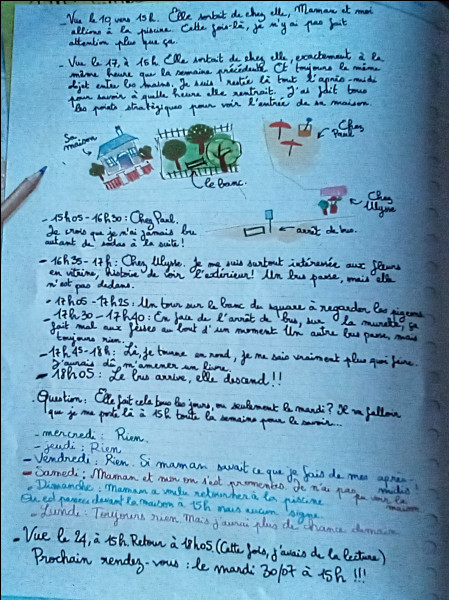 - Vue le 10 vers 15h. Elle sortait de chez elle, Maman et moi
allions à la piscine. Cette fois-là, je n'y ai pas fait
attention plus que ça.
- Vue le 17, à 15h. Elle sortait de chez elle, exactement à la
même heure que la semaine précédente. Et toujours le même
objet entre les mains. Je suis restée là tout l'après-midi
pour savoir à quelle heure elle rentrait. J'ai fait tous
les points stratégiques pour voir l'entrée de sa maison.
Sa
maison
le banc.
Chez
Paul
Chez
Ulysse
arrêt de bus.
- 15h05-16h30 : Chez Paul.
Je crois que je n'ai jamais bu
autant de sodas à la suite !
- 16h35-17h : Chez Ulysse. Je me suis surtout intéressée aux fleurs
en vitrine, histoire de voir l'extérieur ! Un bus passe, mais elle
n'est pas dedans.
- 17h05-17h25 : Un tour sur le banc du square à regarder les pigeons
- 17h30-17h40 : En face de l'arrêt de bus, sur la murette, ça
fait mal aux fesses au bout d'un moment. Un autre bus passe, mais
toujours rien.
- 17h45-18h : Là, je tourne en rond, je ne sais vraiment plus quoi faire.
J'aurais dû m'amener un livre.
- 18h05 : Le bus arrive, elle descend !!
Question : Elle fait cela tous les jours, ou seulement le mardi ? Il va falloir
que je me poste là à 15h toute la semaine pour le savoir...
- mercredi : Rien.
- jeudi : Rien
- Vendredi : Rien. Si maman savait ce que je fais de mes après-
midis !
- Samedi : Maman et moi on s'est promenées. Je n'ai pas pu voir la
maison
- Dimanche : Maman a voulu retourner à la piscine
On est passées devant la maison à 15h mais aucun signe
- Lundi : Toujours rien. Mais j'aurai plus de chance demain
- Vue le 24, à 15h. Retour à 18h05. (Cette fois, j'avais de la lecture)
Prochain rendez-vous : le mardi 30/07 à 15h !!!